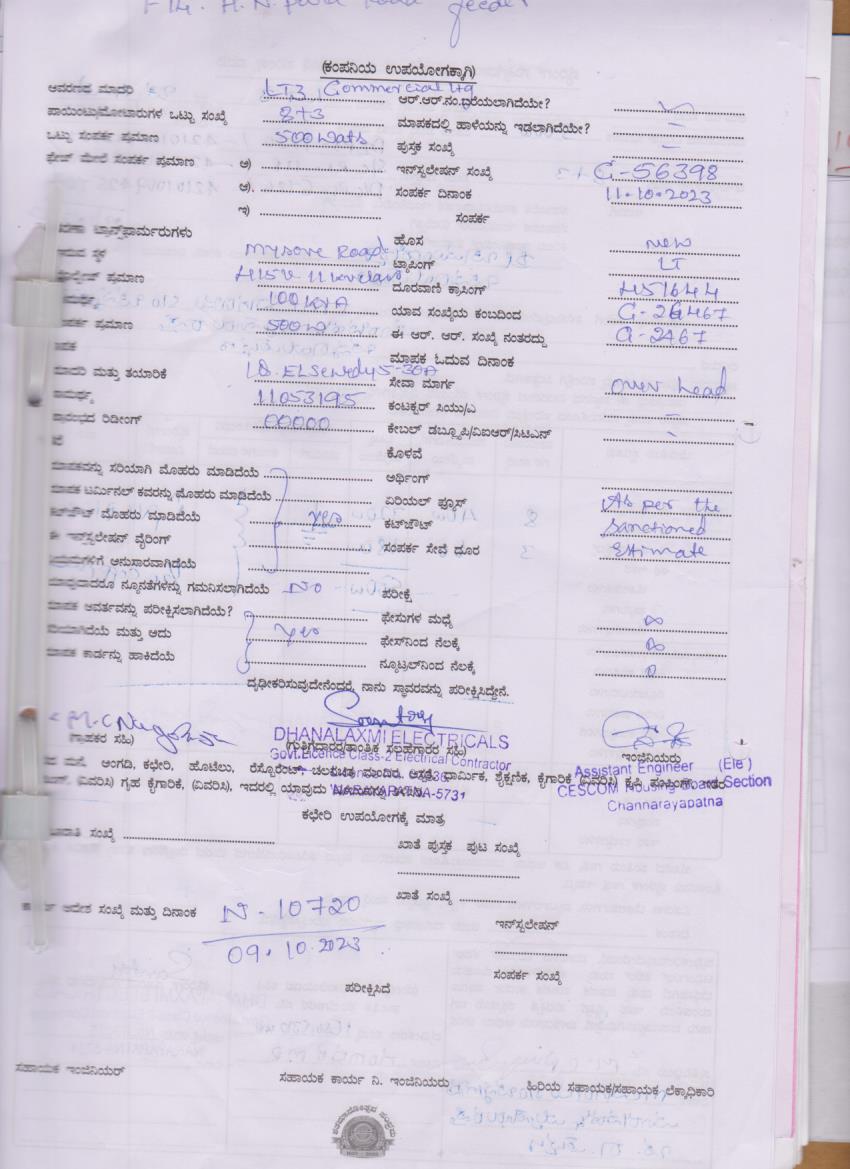 F14. H.N. pura Road feeder
(ಕಂಪನಿಯ ಉಪಯೋಗಕ್ಕಾಗಿ)
ಆವರಣದ ಮಾದರಿ LT3 Commercial Ltg ಆರ್.ಆರ್.ನಂ.ಧರೆಯಲಾಗಿದೆಯೇ?
ಪಾಯಿಂಟು/ಮೋಟಾರುಗಳ ಒಟ್ಟು ಸಂಖ್ಯೆ 8+3 ಮಾಪಕದಲ್ಲಿ ಹಾಳೆಯನ್ನು ಇಡಲಾಗಿದೆಯೇ? –
ಒಟ್ಟು ಸಂಪರ್ಕ ಪ್ರಮಾಣ 500 watts ಪುಸ್ತಕ ಸಂಖ್ಯೆ –
ಫೇಜ್ ಮೇಲೆ ಸಂಪರ್ಕ ಪ್ರಮಾಣ ಅ) ಇನ್‌ಸ್ಟಲೇಷನ್ ಸಂಖ್ಯೆ G-56398
ಆ). ಸಂಪರ್ಕ ದಿನಾಂಕ 11.10.2023
ಇ) ಸಂಪರ್ಕ
ಟ್ರಾನ್ಸ್‌ಫಾರ್ಮರುಗಳು ಹೊಸ new
ಇರುವ ಸ್ಥಳ Mysore Road ಟ್ಯಾಪಿಂಗ್ LT
ಪ್ರಮಾಣ 415V 11kv ದೂರವಾಣಿ ಕ್ರಾಸಿಂಗ್
100 kVA ಯಾವ ಸಂಖ್ಯೆಯ ಕಂಬದಿಂದ G-26467
ಸಂಪರ್ಕ ಪ್ರಮಾಣ 500w ಈ ಆರ್. ಆರ್. ಸಂಖ್ಯೆ ನಂತರದ್ದು G-2467
ಮಾಪಕ ಓದುವ ದಿನಾಂಕ
ಮಾದರಿ ಮತ್ತು ತಯಾರಿಕೆ 1Ø. ELSewedy 5-30A ಸೇವಾ ಮಾರ್ಗ over head
ಸಾಮರ್ಥ್ಯ 11053195 ಕಂಟಕ್ಟರ್ ಸಿಯು/ಎ –
ಪ್ರಾರಂಭದ ರಿಡೀಂಗ್ 00000 ಕೇಬಲ್ ಡಬ್ಲ್ಯೂಪಿ/ವಿಐಆರ್/ಸಿಟಿಎನ್ –
ಕೊಳವೆ
ಮಾಪಕವನ್ನು ಸರಿಯಾಗಿ ಮೊಹರು ಮಾಡಿದೆಯೆ ಅರ್ಥಿಂಗ್
ಮಾಪಕ ಟರ್ಮಿನಲ್ ಕವರನ್ನು ಮೊಹರು ಮಾಡಿದೆಯೆ ಏರಿಯಲ್ ಫ್ಯೂಸ್ As per the
ಕಟ್‌ಔಟ್ ಮೊಹರು ಮಾಡಿದೆಯೆ yes ಕಟ್‌ಔಟ್ Sanctioned
ಈ ಇನ್‌ಸ್ಟಲೇಷನ್ ವೈರಿಂಗ್ ಸಂಪರ್ಕ ಸೇವೆ ದೂರ Estimate
ನಿಯಮಗಳಿಗೆ ಅನುಸಾರವಾಗಿದೆಯೆ
ಯಾವುದಾದರೂ ನ್ಯೂನತೆಗಳನ್ನು ಗಮನಿಸಲಾಗಿದೆಯೆ No ಪರೀಕ್ಷೆ
ಮಾಪಕ ಆವರ್ತವನ್ನು ಪರೀಕ್ಷಿಸಲಾಗಿದೆಯೆ? ಫೇಸುಗಳ ಮಧ್ಯೆ ∞
ಸರಿಯಾಗಿದೆಯೆ ಮತ್ತು ಅದು yes ಫೇಸ್‌ನಿಂದ ನೆಲಕ್ಕೆ ∞
ಮಾಪಕ ಕಾರ್ಡನ್ನು ಹಾಕಿದೆಯೆ ನ್ಯೂಟ್ರಲ್‌ನಿಂದ ನೆಲಕ್ಕೆ 0
ದೃಢೀಕರಿಸುವುದೇನೆಂದರೆ, ನಾನು ಸ್ಥಾವರವನ್ನು ಪರೀಕ್ಷಿಸಿದ್ದೇನೆ.
DHANALAXMI ELECTRICALS
(ಗ್ರಾಹಕರ ಸಹಿ) (ಗುತ್ತಿಗೆದಾರರ/ತಾಂತ್ರಿಕ ಸಲಹೆಗಾರರ ಸಹಿ) ಇಂಜಿನಿಯರು
Govt.Licence Class-2 Electrical Contractor
Assistant Engineer (Ele)
ಮನೆ, ಅಂಗಡಿ, ಕಛೇರಿ, ಹೊಟೆಲು, ರೆಸ್ಟೋರೆಂಟ್, ಚಲಚಿತ್ರ ಮಂದಿರ, ಆಸ್ಪತ್ರೆ, ಧಾರ್ಮಿಕ, ಶೈಕ್ಷಣಿಕ, ಕೈಗಾರಿಕೆ (ವಿವರಿಸಿ) ಕೃಷಿ ಪಂಪಿಂಗ್, ಇತರ
CESCOM Housing Board Section
(ವಿವರಿಸಿ) ಗೃಹ ಕೈಗಾರಿಕೆ, (ವಿವರಿಸಿ), ಇದರಲ್ಲಿ ಯಾವುದು
NARAYAPATNA-5731
Channarayapatna
ಕಛೇರಿ ಉಪಯೋಗಕ್ಕೆ ಮಾತ್ರ
ಸಂಖ್ಯೆ ಖಾತೆ ಪುಸ್ತಕ ಪುಟ ಸಂಖ್ಯೆ
ಖಾತೆ ಸಂಖ್ಯೆ
ಆದೇಶ ಸಂಖ್ಯೆ ಮತ್ತು ದಿನಾಂಕ N-10720 ಇನ್‌ಸ್ಟಲೇಷನ್
09.10.2023
ಸಂಪರ್ಕ ಸಂಖ್ಯೆ
ಪರೀಕ್ಷಿಸಿದೆ
ಸಹಾಯಕ ಇಂಜಿನಿಯರ್ ಸಹಾಯಕ ಕಾರ್ಯ ನಿ. ಇಂಜಿನಿಯರು ಹಿರಿಯ ಸಹಾಯಕ/ಸಹಾಯಕ ಲೆಕ್ಕಾಧಿಕಾರಿ